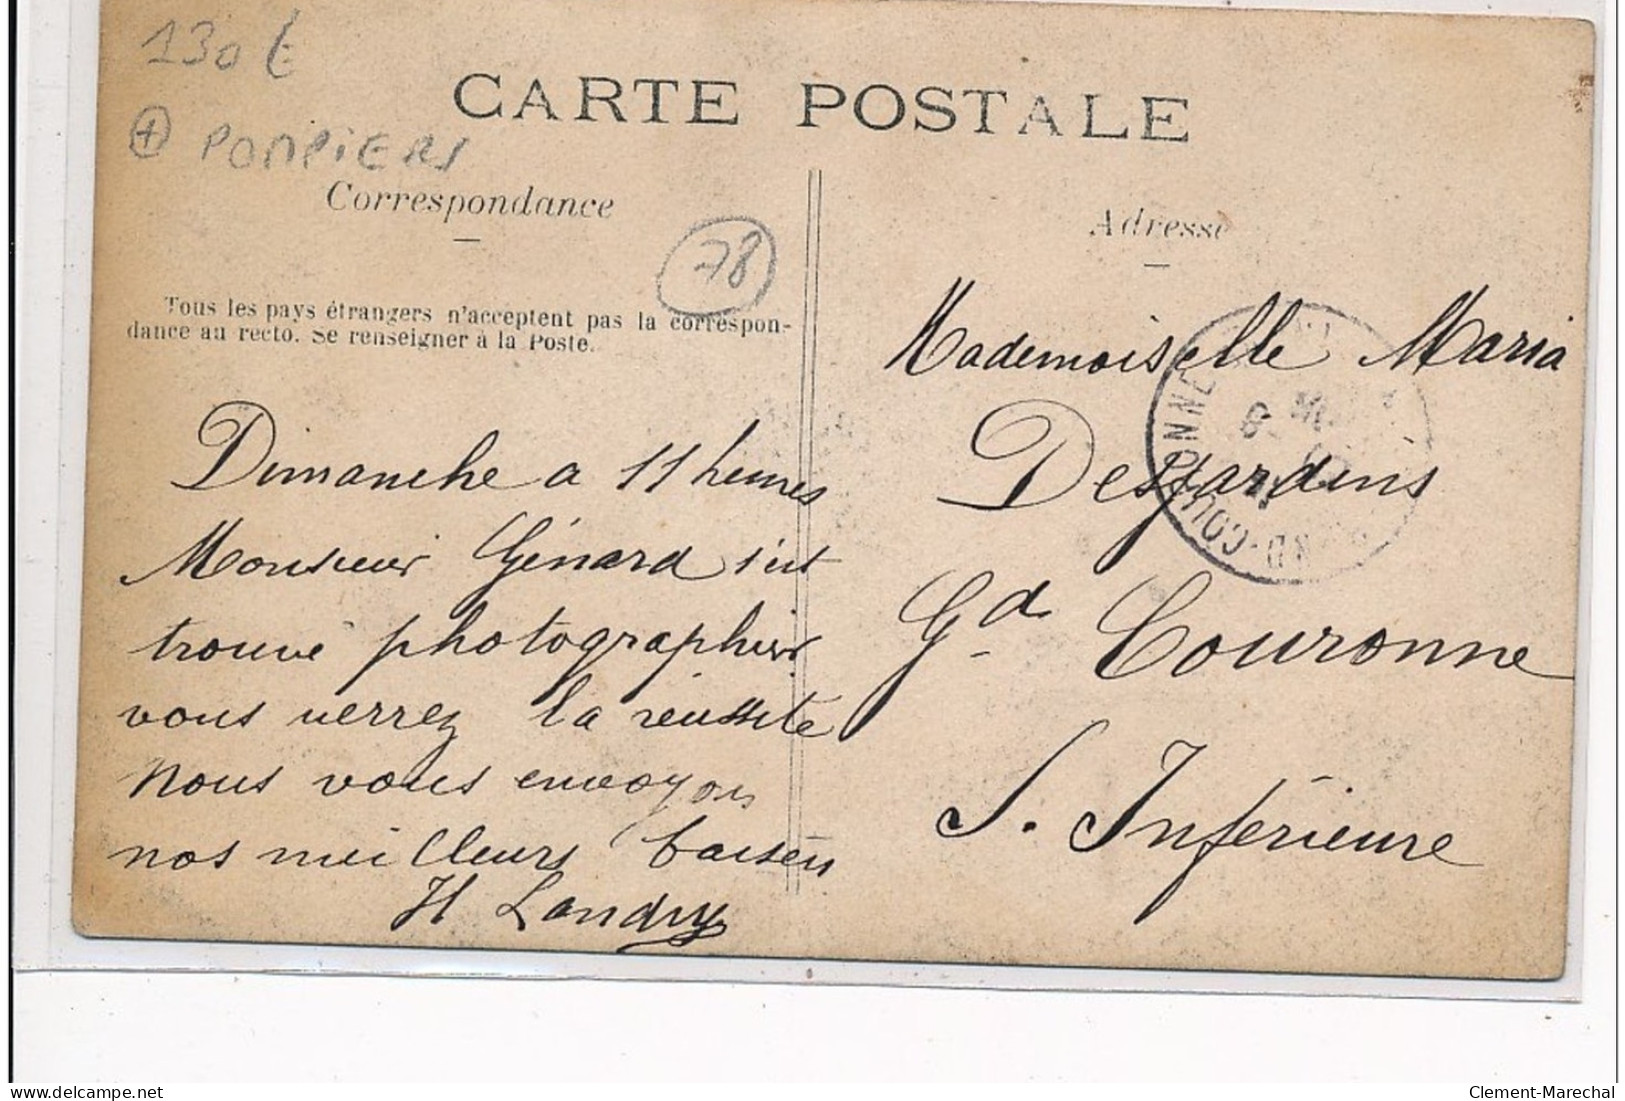 130 €
+ POMPIERS
CARTE POSTALE
Correspondance
Adresse
78
Tous les pays étrangers n'acceptent pas la correspon-
dance au recto. Se renseigner à la Poste.
Dimanche a 11 heures
Monsieur Génard s'est
trouvé photographier
vous verrez la réussite
nous vous envoyons
nos meilleurs baisers
H Landry
Mademoiselle Maria
Desjardins
Gd Couronne
S. Inférieure
Clement-Marechal